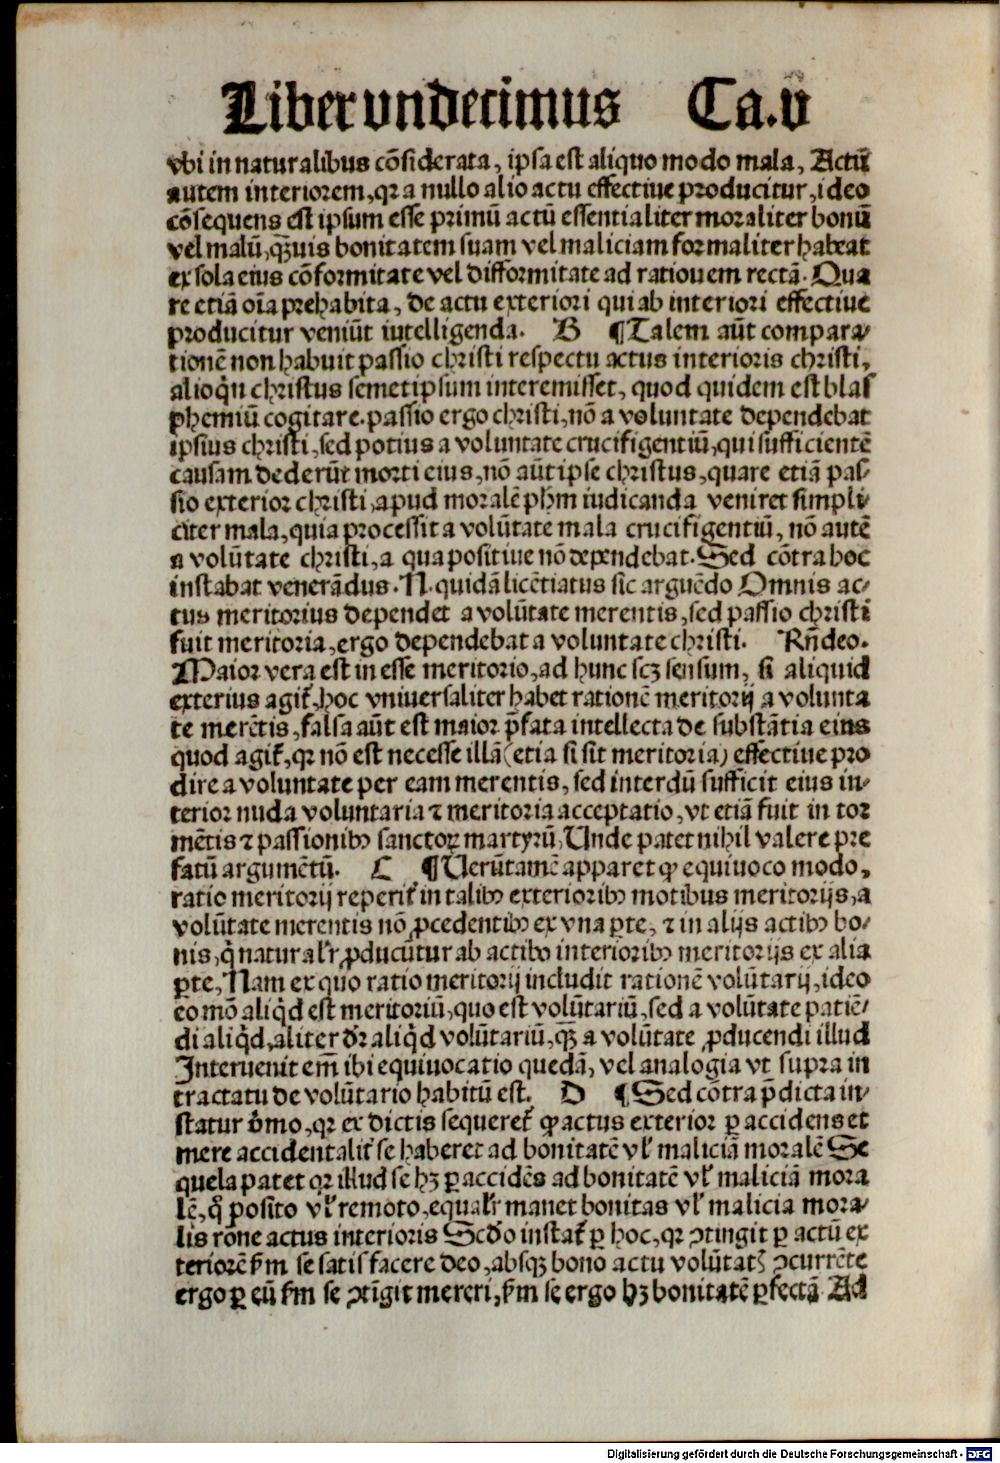 Liber vndecimus Ca.v
vbi in naturalibus cōsiderata, ipsa est aliquo modo mala, Actū
autem interiorem,qꝛ a nullo alio actu effectiue producitur,ideo
cōsequens est ipsum esse primū actū essentialiter moraliter bonū
vel malū,qꝫuis bonitatem suam vel maliciam formaliter habeat
ex sola eius cōformitate vel difformitate ad rationem rectā. Qua
re etiā oīa prehabita, de actu exteriori qui ab interiori effectiue
producitur veniūt iutelligenda. B ¶Talem aūt compara⸗
tionē non habuit passio christi respectu actus interioris christi,
alioqͥn christus semetipsum interemisset, quod quidem est blas
phemiū cogitare.passio ergo christi,nō a voluntate dependebat
ipsius christi,sed potius a voluntate crucifigentiū,qui sufficientē
causam dederūt morti eius,nō aūt ipse christus,quare etiā pas⸗
sio exterior christi,apud moralē phm iudicanda veniret simpli⸗
citer mala,quia processit a volūtate mala crucifigentiū, nō autē
a volūtate christi,a qua positiue nō dependebat.Sed cōtra hoc
instabat venerādus.N.quidā licētiatus sic arguēdo Omnis ac⸗
tus meritorius dependet a volūtate merentis,sed passio christi
fuit meritoria,ergo dependebat a voluntate christi. Rn̄deo.
Maior vera est in esse meritorio,ad hunc scꝫ sensum, si aliquid
exterius agiť,hoc vniuersaliter habet rationē meritorij a volunta
te merētis,falsa aūt est maior p̄fata intellecta de substātia eius
quod agiť,qꝛ nō est necesse illā(etia si sit meritoria)effectiue pro
dire a voluntate per eam merentis,sed interdū sufficit eius in⸗
terior nuda voluntaria ⁊ meritoria acceptatio,vt etiā fuit in tor
mētis ⁊ passionibꝰ sanctoꝝ martyrū,Unde patet nihil valere pre
fatū argumētū. C ¶Uerūtamē apparet ꝙ equiuoco modo,
ratio meritorij reperiť in talibꝰ exterioribꝰ motibus meritorijs,a
volūtate merentis nō ꝓcedentibꝰ ex vna ꝑte, ⁊ in alijs actibꝰ bo⸗
nis,qͥ naturalʳ ꝓducūtur ab actibꝰ interioribꝰ meritorijs ex alia
ꝑte,Nam ex quo ratio meritorij includit rationē volūtarij,ideo
eo mō aliqͥd est meritoriū,quo est volūtariū,sed a volūtate patiē⸗
di aliqͥd,aliter dꝛ aliqͥd volūtariū,qꝫ a volūtate ꝓducendi illud
Interuenit em̄ ibi equiuocatio quedā, vel analogia vt supra in
tractatu de volūtario habitū est. D ¶Sed cōtra p̄dicta in⸗
statur pͥmo,qꝛ ex dictis sequereť ꝙ actus exterior ꝑ accidens et
mere accidentaliť se haberet ad bonitatē vl̓ maliciā moralē Se
quela patet qꝛ illud se hꝫ ꝑ accidēs ad bonitatē vl̓ maliciā mora
lē,qͦ posito vl̓ remoto,equalʳ manet bonitas vl̓ malicia mora⸗
lis rōne actus interioris Scd̓o instať ꝑ hoc,qꝛ ꝯtingit ꝑ actū ex
teriorē ẜm se satisfacere deo,absqꝫ bono actu volūtatꝭ ꝯcurrēte
ergo ꝑ eū ẜm se ꝯtīgit mereri,ẜm se ergo hꝫ bonitatē ꝑfectā Ad
Digitalisierung gefördert durch die Deutsche Forschungsgemeinschaft - DFG